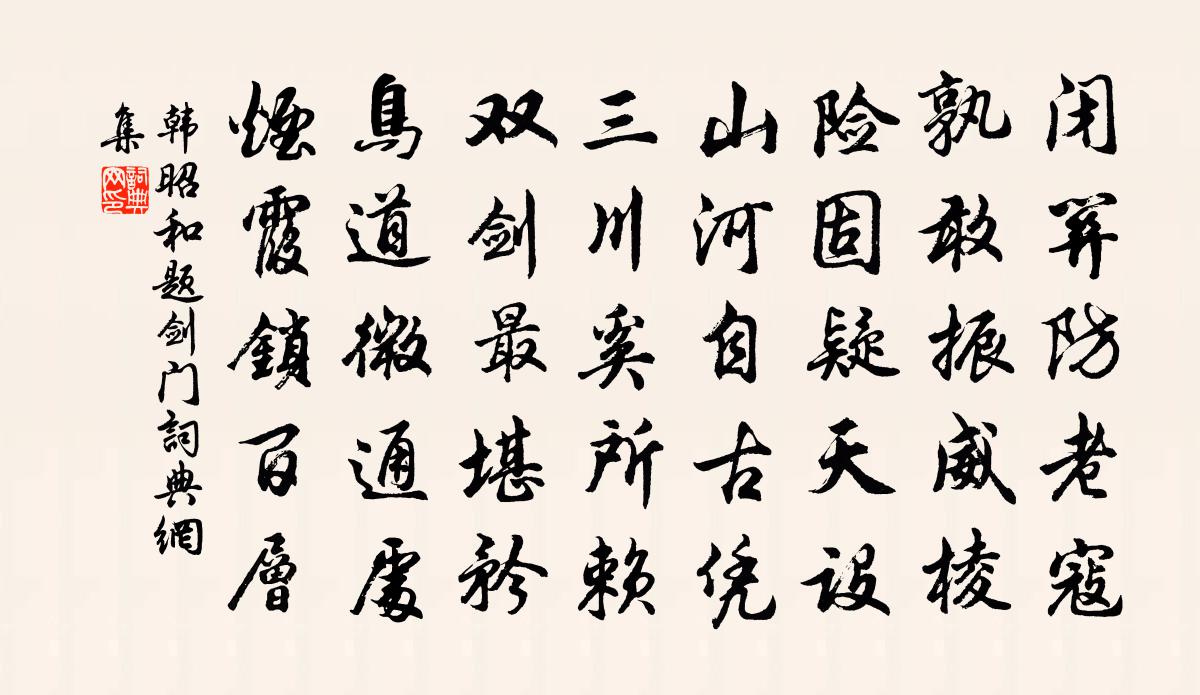 闭关防老寇
孰敢振威棱
险固疑天设
山河自古凭
三川奚所赖
双剑最堪矜
鸟道微通处
烟霞锁百层
韩昭和题剑门詞典網
集
詞典
网印